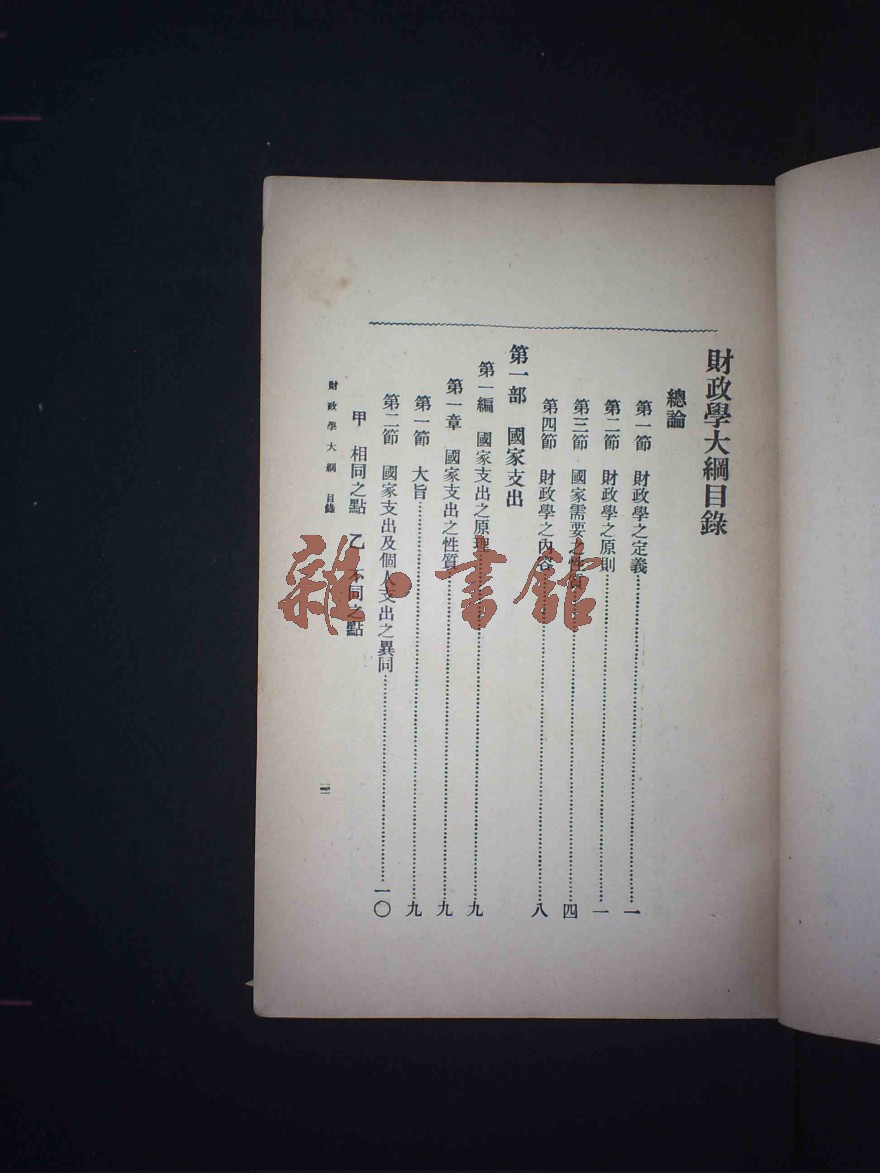 財政學大綱目錄
總論
第一節 財政學之定義……一
第二節 財政學之原則……一
第三節 國家需要之性質……四
第四節 財政學之內容……八
第一部 國家支出
第一編 國家支出之原理……九
第一章 國家支出之性質……九
第一節 大旨……九
第二節 國家支出及個人支出之異同……一〇
甲 相同之點 乙 不同之點
財政學大綱 目錄
雜·書館